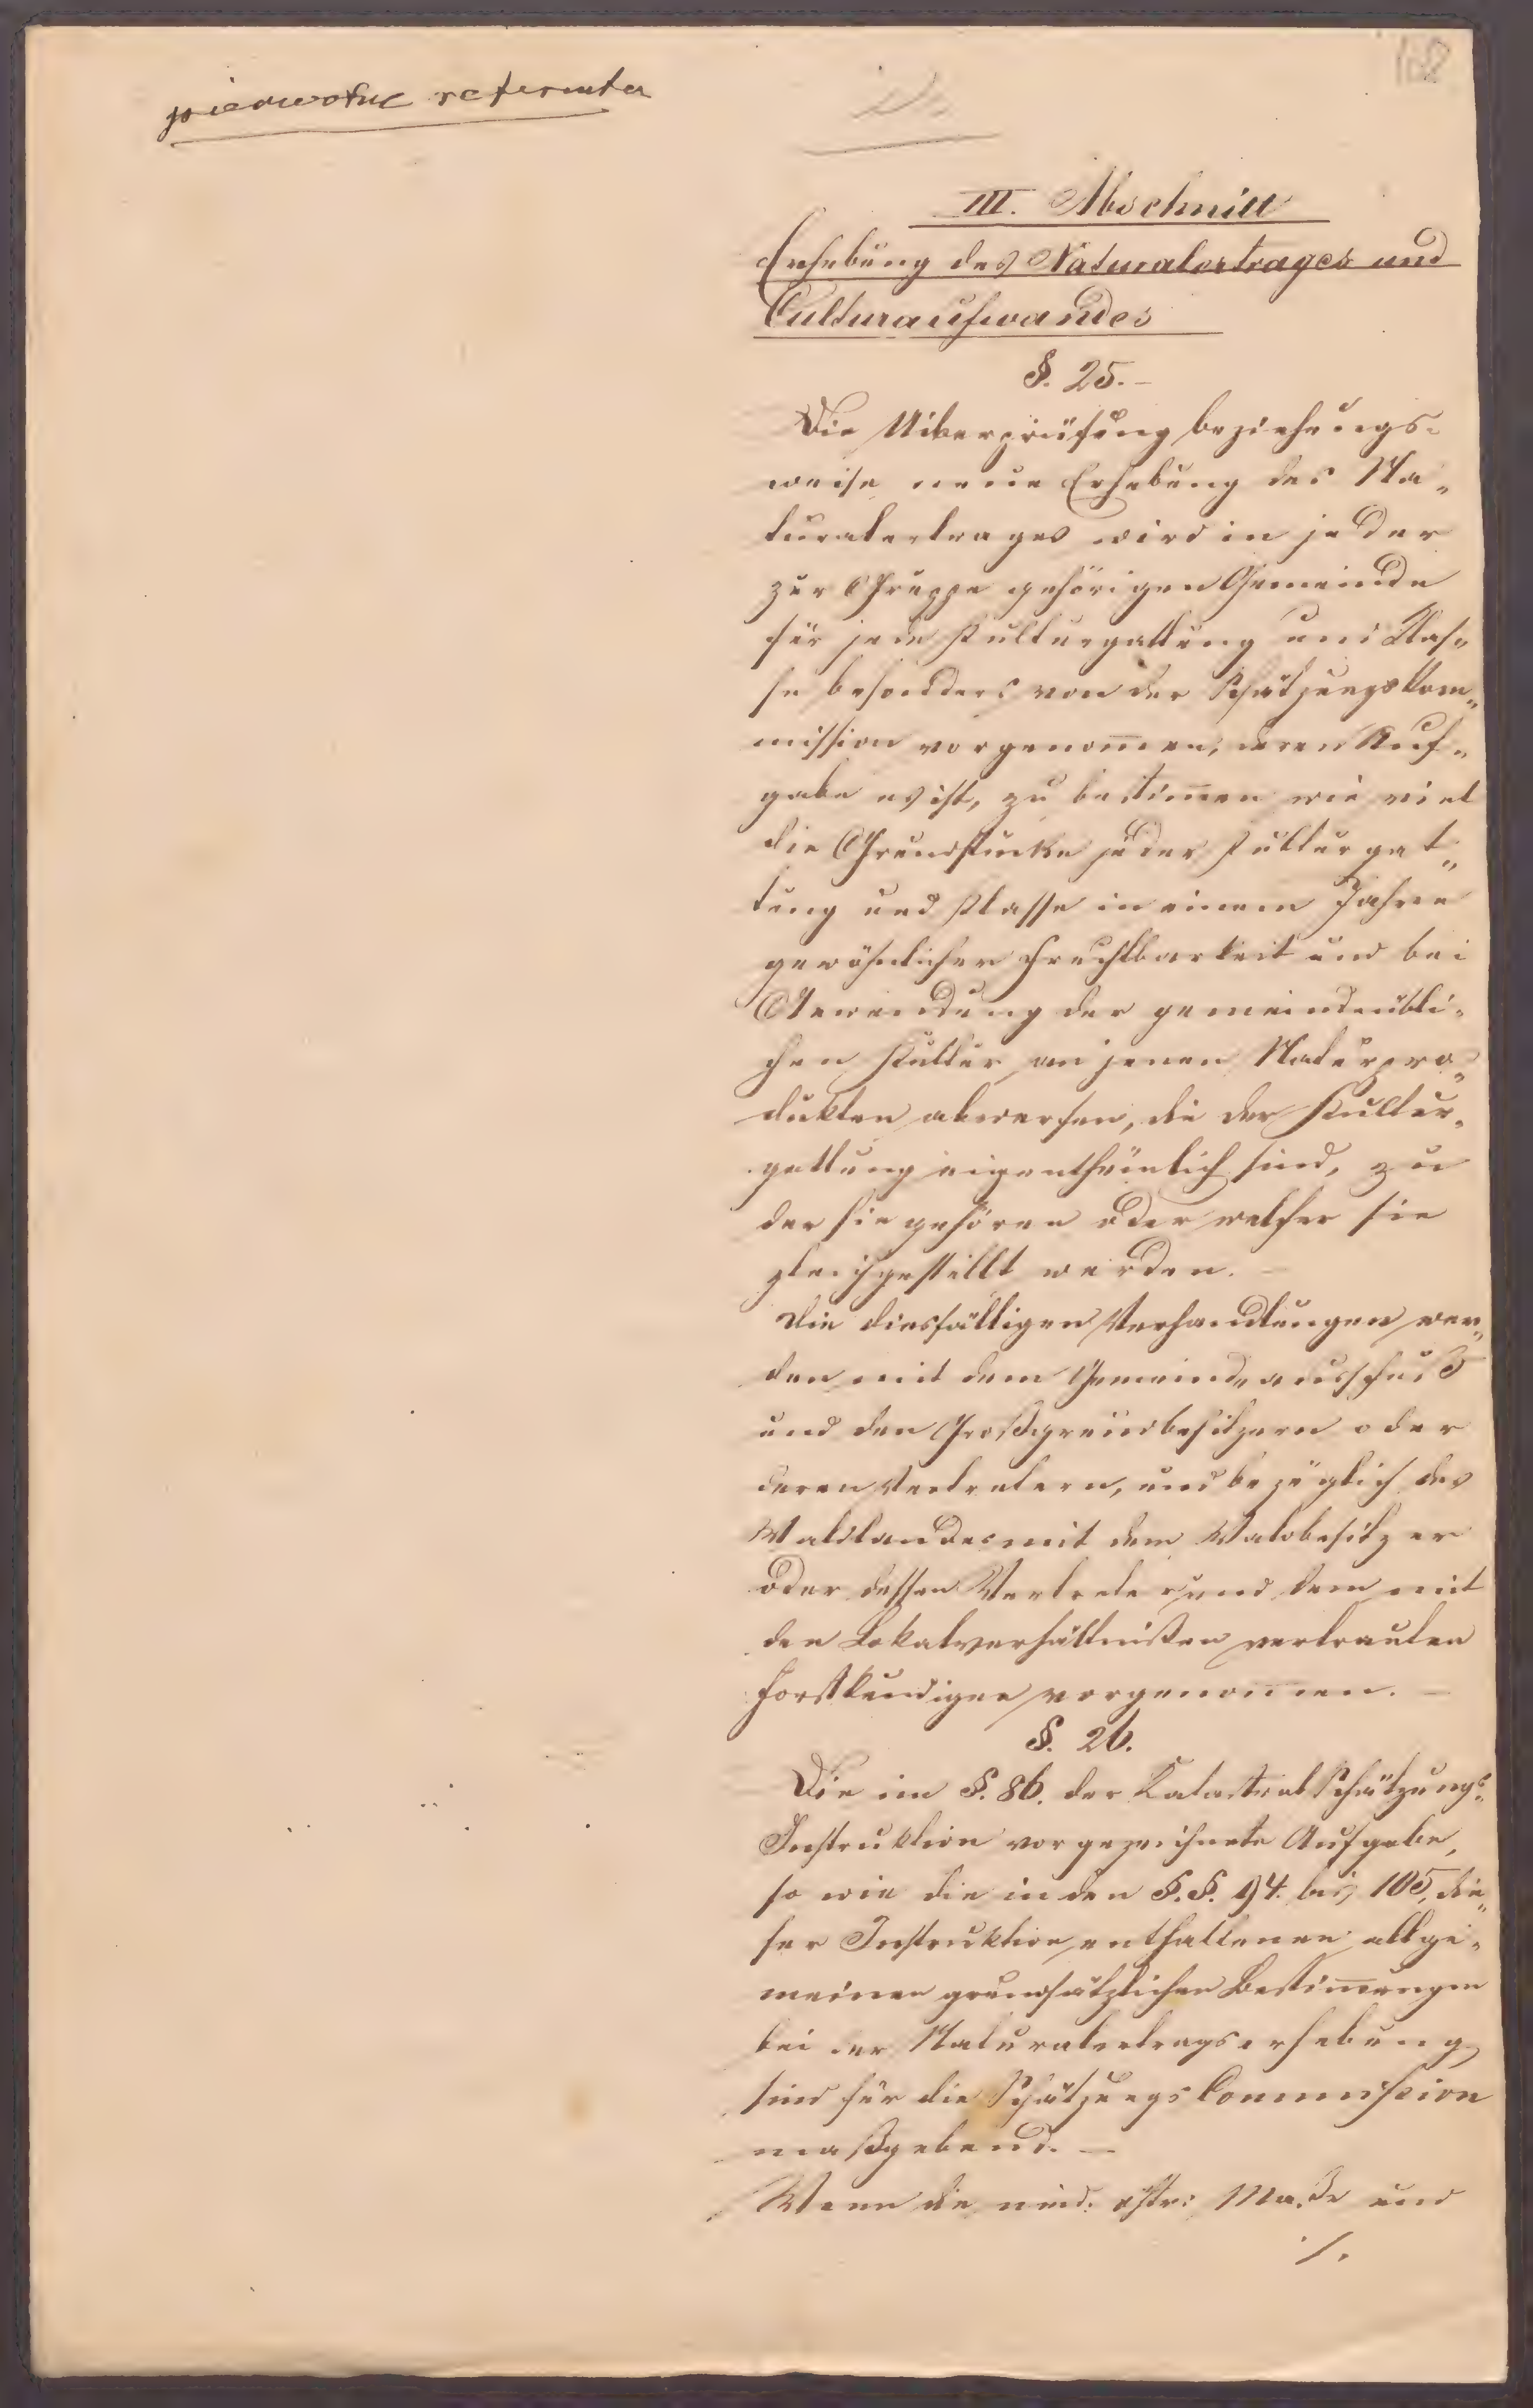 pierwotne referenta
III. Abschnitt
Erhebung des Naturalertrages und
Culturaufwandes
§. 25. –
Die Uiberprüfung beziehungs-
weise neue Erhebung des Na-
turalertrages wird in jeder
zur Gruppe gehörigen Gemeinde
für jede Kulturgattung und Klas-
se besonders von der Schätzungskom-
mission vorgenom̅en, deren Auf-
gabe es ist, zu bestim̅en wie viel
die Grundstücke jeder Kulturgat-
tung und Klasse in einem Jahre
gewöhnlicher Fruchtbarkeit und bei
Anwendung der gemeindeübli-
chen Kultur an jenen Naturpro-
dukten abwerfen, die der Kultur-
gattung eigenthümlich sind, zu
der sie gehören oder welcher sie
gleichgestellt werden. –
Die diesfälligen Verhandlungen wer-
den mit dem Gemeindeausschuß
und den Großgrundbesitzern oder
deren Vertretern, und bezüglich des
Waldlandes mit dem Waldbesitzer
oder dessen Vertreter und dem mit
den Lokalverhältnißen vertrauten
Forstkundigen vorgenommen. –
§. 26.
Die im §. 86. der Katastral Schätzungs-
Instruktion vorgezeichnete Aufgabe,
so wie die in den §.§. 94. bis 105, die-
ser Instruktion enthaltenen allge-
meinen grundsätzlichen Bestim̅ungen
bei der Naturalertragserhebung
sind für die Schätzungs Commission
maßgebend. –
Wenn die nied: östr: Maße und
./.